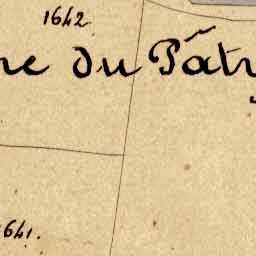 1642
ne du Pât
641.